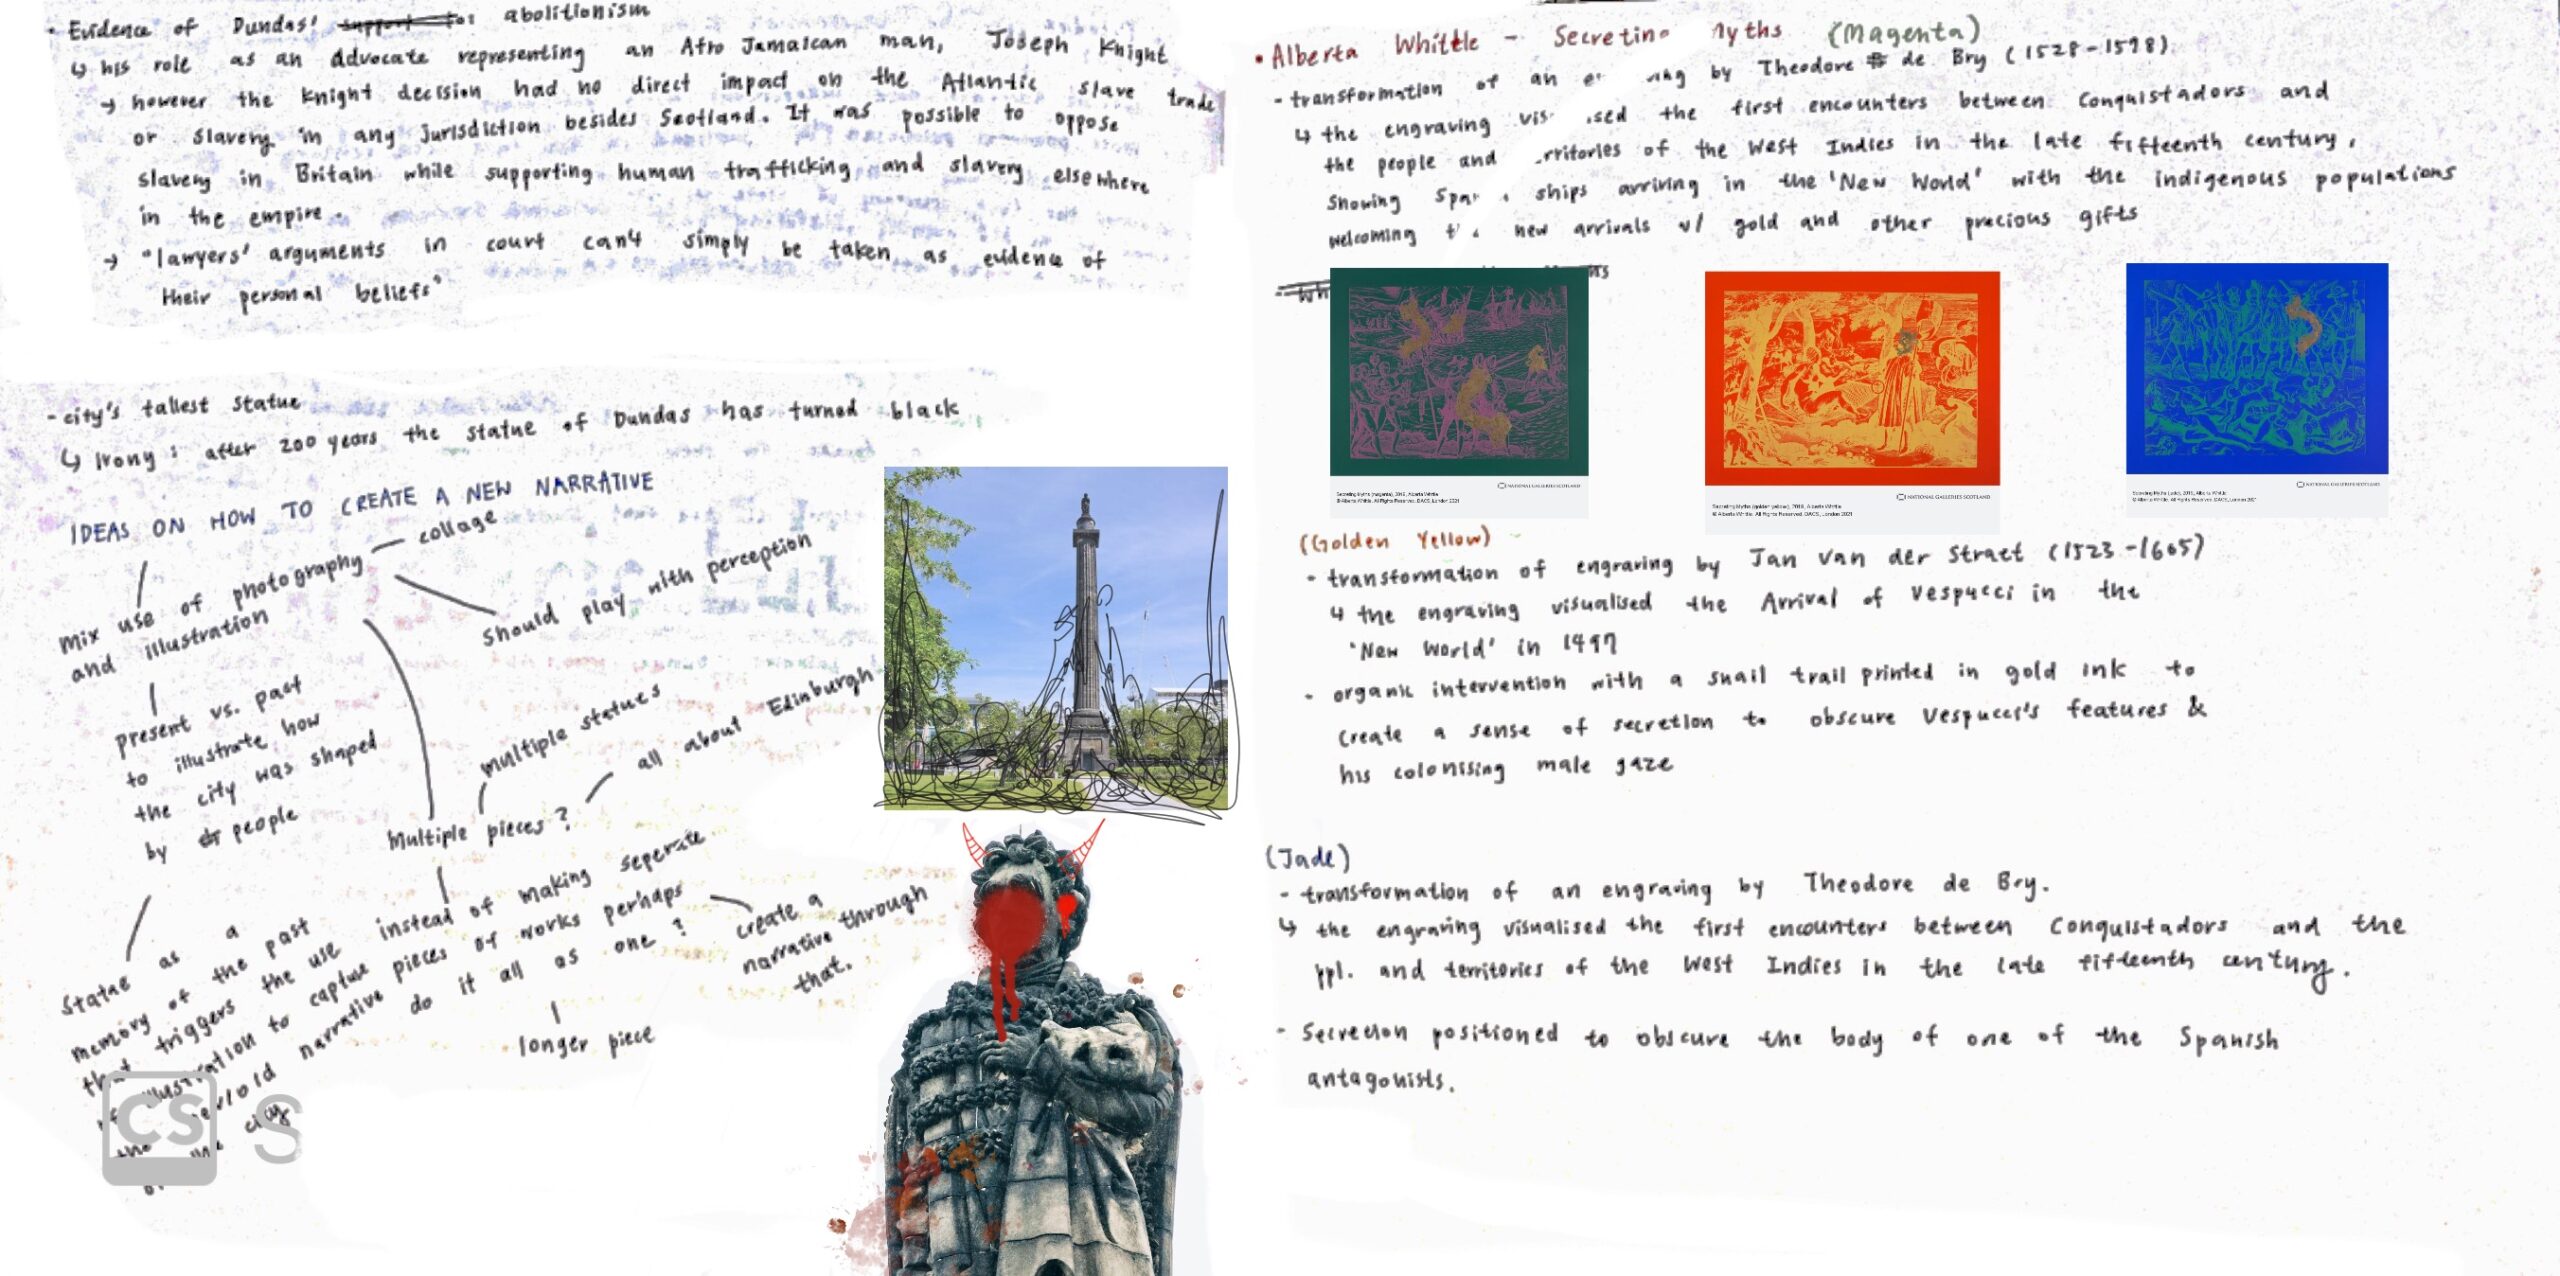 • Evidence of Dundas' support for abolitionism
↳ his role as an Advocate representing an Afro Jamaican man, Joseph Knight
→ however the Knight decision had no direct impact on the Atlantic slave trade
or slavery in any jurisdiction besides Scotland. It was possible to oppose
slavery in Britain while supporting human trafficking and slavery elsewhere
in the empire.
→ "lawyers' arguments in court can't simply be taken as evidence of
their personal beliefs"
- city's tallest statue
↳ Irony: after 200 years the statue of Dundas has turned black
IDEAS ON HOW TO CREATE A NEW NARRATIVE
mix use of photography
and illustration
collage
should play with perception
present vs. past
to illustrate how
the city was shaped
by people
multiple statues
all about Edinburgh
Multiple pieces?
instead of making seperate
pieces of works perhaps
do it all as one?
create a
narrative through
that.
longer piece
Statue as a
memory of the past
that triggers the use
of illustration to capture
the new/old narrative
city
CS S
• Alberta Whittle - Myths (Magenta)
- transformation of an by Theodore de Bry (1528-1598)
↳ the engraving the first encounters between Conquistadors and
the people and of the West Indies in the late fifteenth century,
showing ships arriving in the 'New World' with the indigenous populations
welcoming new arrivals w/ gold and other precious gifts
Secreting Myths (magenta), 2019, Alberta Whittle
© Alberta Whittle. All Rights Reserved, DACS, London 2021
NATIONAL GALLERIES SCOTLAND
Secreting Myths (golden yellow), 2019, Alberta Whittle
© Alberta Whittle. All Rights Reserved, DACS, London 2021
NATIONAL GALLERIES SCOTLAND
Secreting Myths (jade), 2019, Alberta Whittle
© Alberta Whittle. All Rights Reserved, DACS, London 2021
NATIONAL GALLERIES SCOTLAND
(Golden Yellow)
- transformation of engraving by Jan Van der Straet (1523-1605)
↳ the engraving visualised the Arrival of Vespucci in the
'New World' in 1497
- organic intervention with a snail trail printed in gold ink to
create a sense of secretion to obscure Vespucci's features &
his colonising male gaze
(Jade)
- transformation of an engraving by Theodore de Bry.
↳ the engraving visualised the first encounters between Conquistadors and the
ppl. and territories of the West Indies in the late fifteenth century.
- Secretion positioned to obscure the body of one of the Spanish
antagonists.